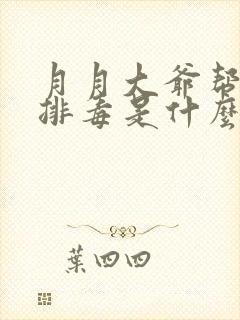 月月大爷帮
排毒是什麼
葉四四